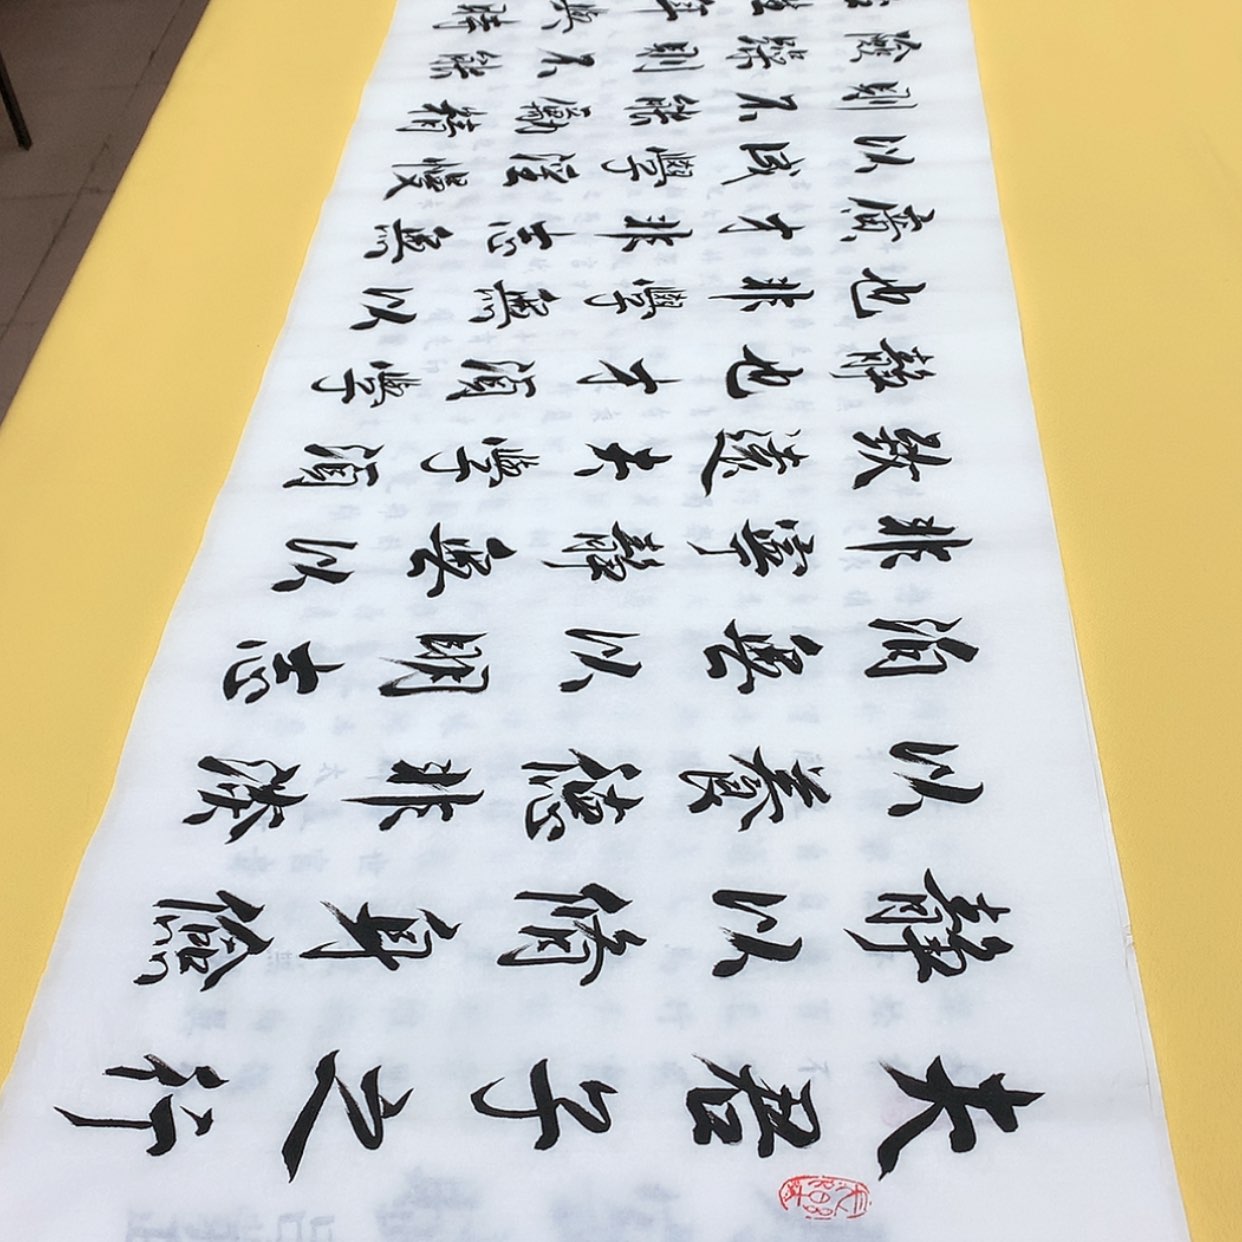 夫君子之行
靜以修身儉
以養德非淡
泊無以明志
非寧靜無以
致遠夫學須
靜也才須學
也非學無以
廣才非志無
以成學淫慢
則不能勵精
險躁則不能
年與時